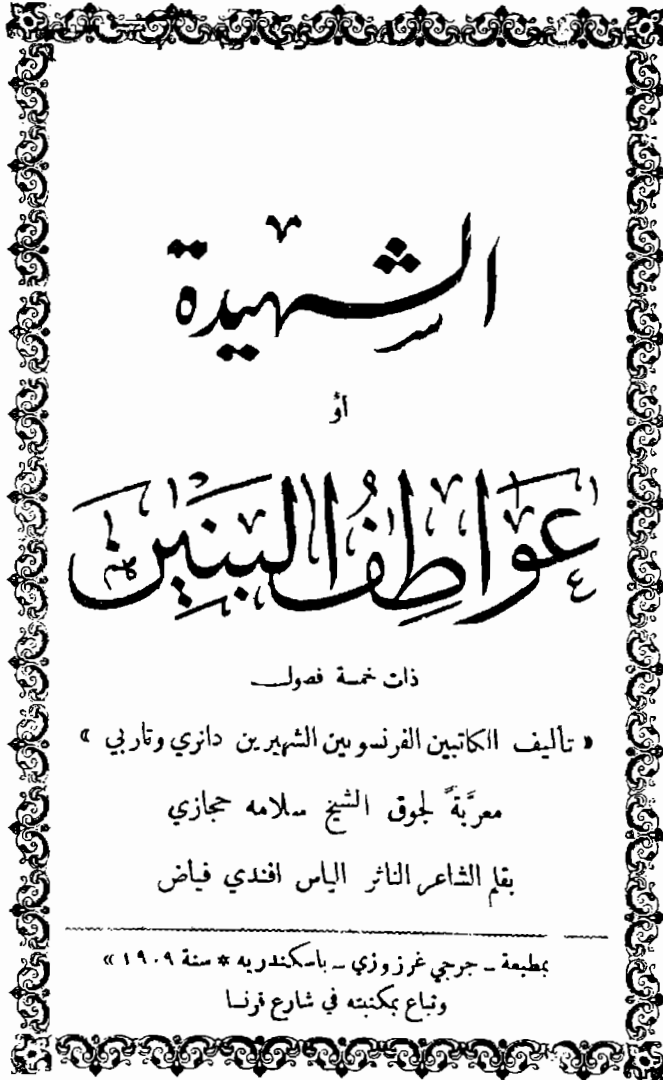 الشهيدة
أو
عَوَاطِفُ البَنِين
ذات خمسة فصول
« تأليف الكاتبين الفرنسويين الشهيرين دانري وتاربي »
معرَّبةً لجوق الشيخ سلامه حجازي
بقلم الشاعر الناثر الياس افندي فياض
بمطبعة – جرجي غرزوزي – باسكندريه * سنة ١٩٠٩ »
وتباع بمكتبته في شارع فرنسا